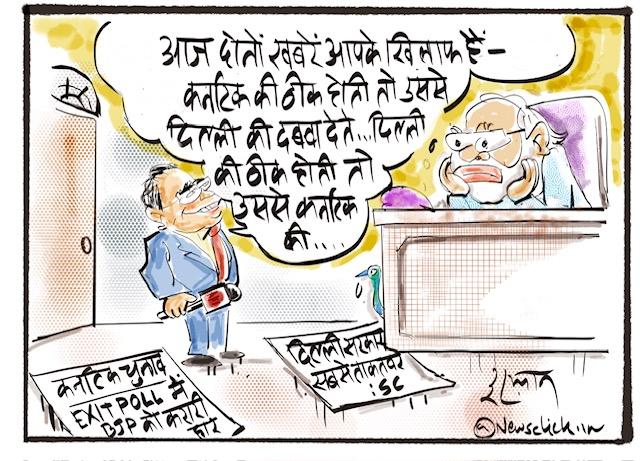 आज दोनों ख़बरें आपके खिलाफ हैं -
कर्नाटक की ठीक होती तो उससे
दिल्ली की दबवा देते... दिल्ली
की ठीक होती तो
उससे कर्नाटक
की....
कर्नाटक चुनाव
EXIT POLL में
BJP को करारी
हार
दिल्ली सरकार
सबसे ताकतवर
:SC
इरफान
@Newsclick.in